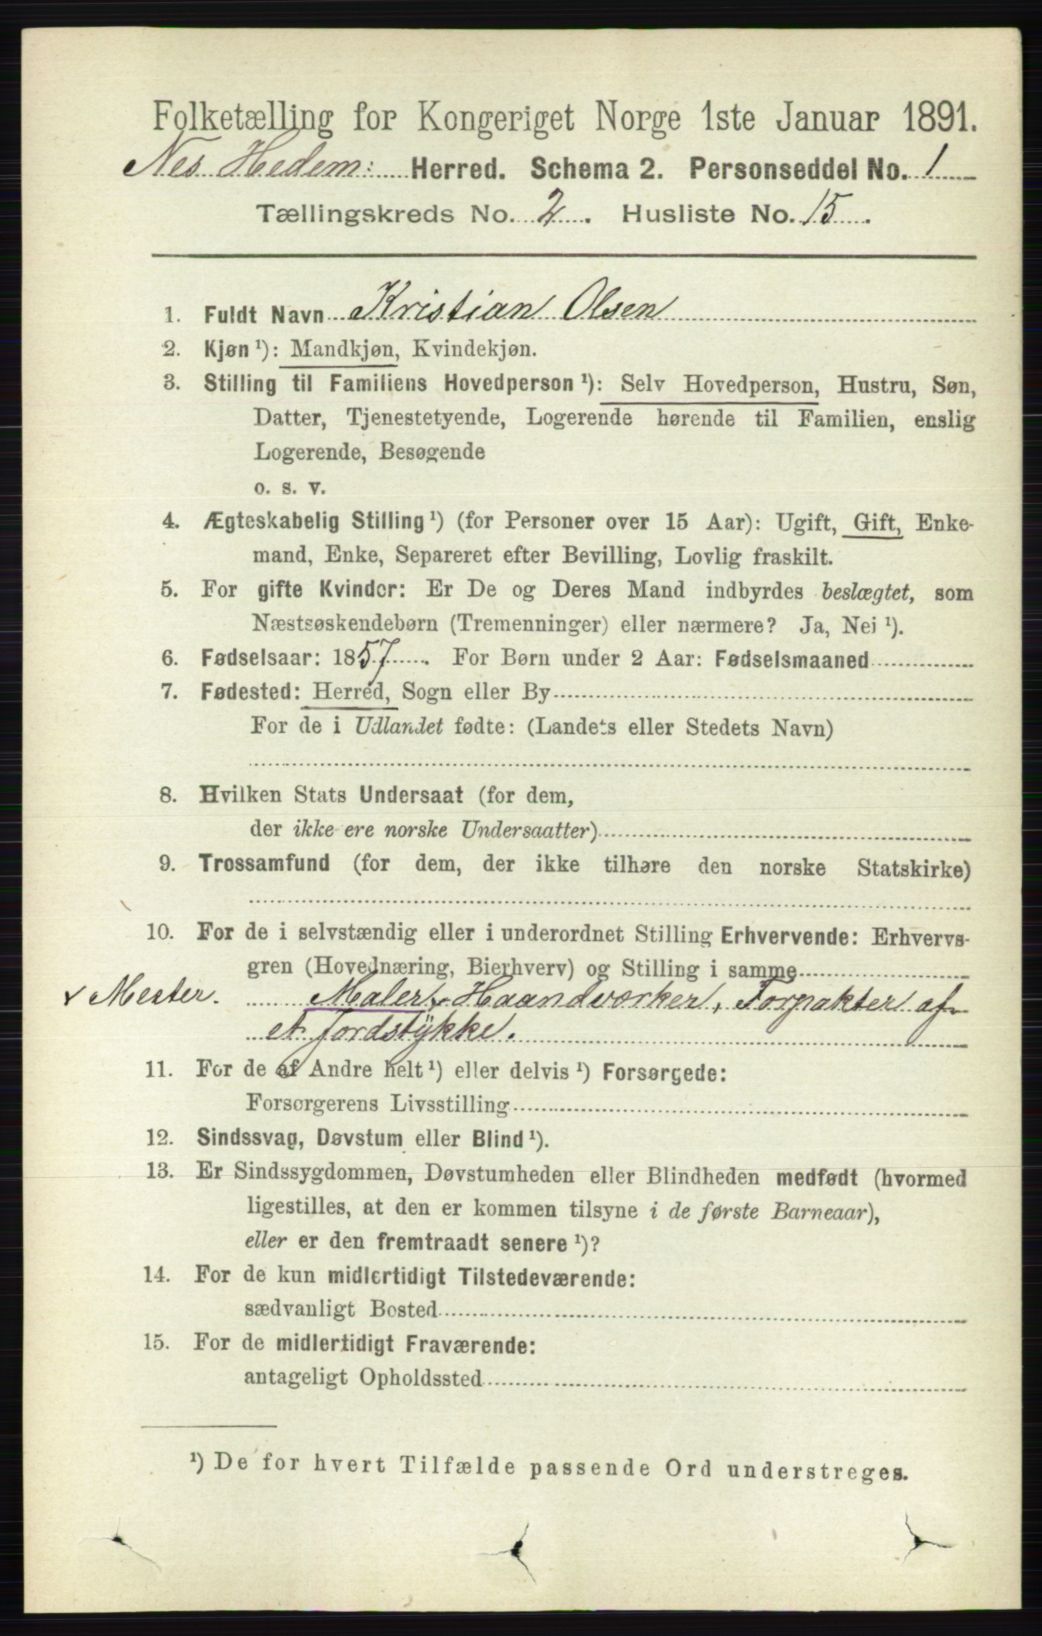 Folketælling for Kongeriget Norge 1ste Januar 1891.
Nes Hedem: Herred. Schema 2. Personseddel No. 1
Tællingskreds No. 2. Husliste No. 15.
1. Fuldt Navn Kristian Olsen
2. Kjøn ¹): Mandkjøn, Kvindekjøn.
3. Stilling til Familiens Hovedperson ¹): Selv Hovedperson, Hustru, Søn,
Datter, Tjenestetyende, Logerende hørende til Familien, enslig
Logerende, Besøgende
o. s. v.
4. Ægteskabelig Stilling ¹) (for Personer over 15 Aar): Ugift, Gift, Enke-
mand, Enke, Separeret efter Bevilling, Lovlig fraskilt.
5. For gifte Kvinder: Er De og Deres Mand indbyrdes beslægtet, som
Næstsøskendebørn (Tremenninger) eller nærmere? Ja, Nei ¹).
6. Fødselsaar: 1857. For Børn under 2 Aar: Fødselsmaaned
7. Fødested: Herred, Sogn eller By
For de i Udlandet fødte: (Landets eller Stedets Navn)
8. Hvilken Stats Undersaat (for dem,
der ikke ere norske Undersaatter)
9. Trossamfund (for dem, der ikke tilhøre den norske Statskirke)
10. For de i selvstændig eller i underordnet Stilling Erhvervende: Erhvervs-
gren (Hovednæring, Bierhverv) og Stilling i samme
v Mester. Maler v Haandværker, Forpakter af
et Jordstykke.
11. For de af Andre helt ¹) eller delvis ¹) Forsørgede:
Forsørgerens Livsstilling
12. Sindssvag, Døvstum eller Blind ¹).
13. Er Sindssygdommen, Døvstumheden eller Blindheden medfødt (hvormed
ligestilles, at den er kommen tilsyne i de første Barneaar),
eller er den fremtraadt senere ¹)?
14. For de kun midlertidigt Tilstedeværende:
sædvanligt Bosted
15. For de midlertidigt Fraværende:
antageligt Opholdssted
¹) De for hvert Tilfælde passende Ord understreges.